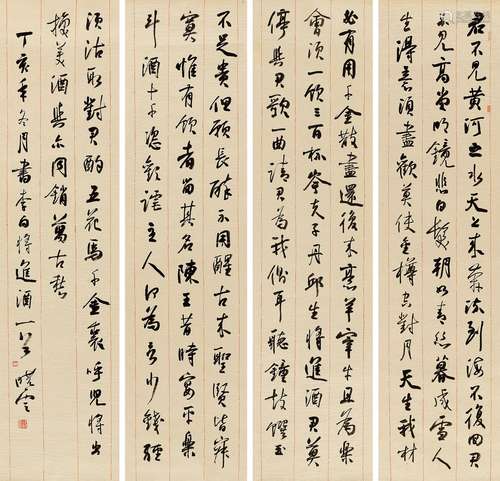 君不見黃河之水天上來奔流到海不復回君
不見高堂明鏡悲白髮朝如青絲暮成雪人
生得意須盡歡莫使金樽空對月天生我材
必有用千金散盡還復來烹羊宰牛且為樂
會須一飲三百杯岑夫子丹邱生將進酒君莫
停與君歌一曲請君為我傾耳聽鐘鼓饌玉
不足貴但願長醉不用醒古來聖賢皆寂
寞惟有飲者留其名陳王昔時宴平樂
斗酒十千恣歡謔主人何為言少錢徑
須沽取對君酌五花馬千金裘呼兒將出
換美酒與爾同銷萬古愁
丁亥年冬月書李白將進酒一首